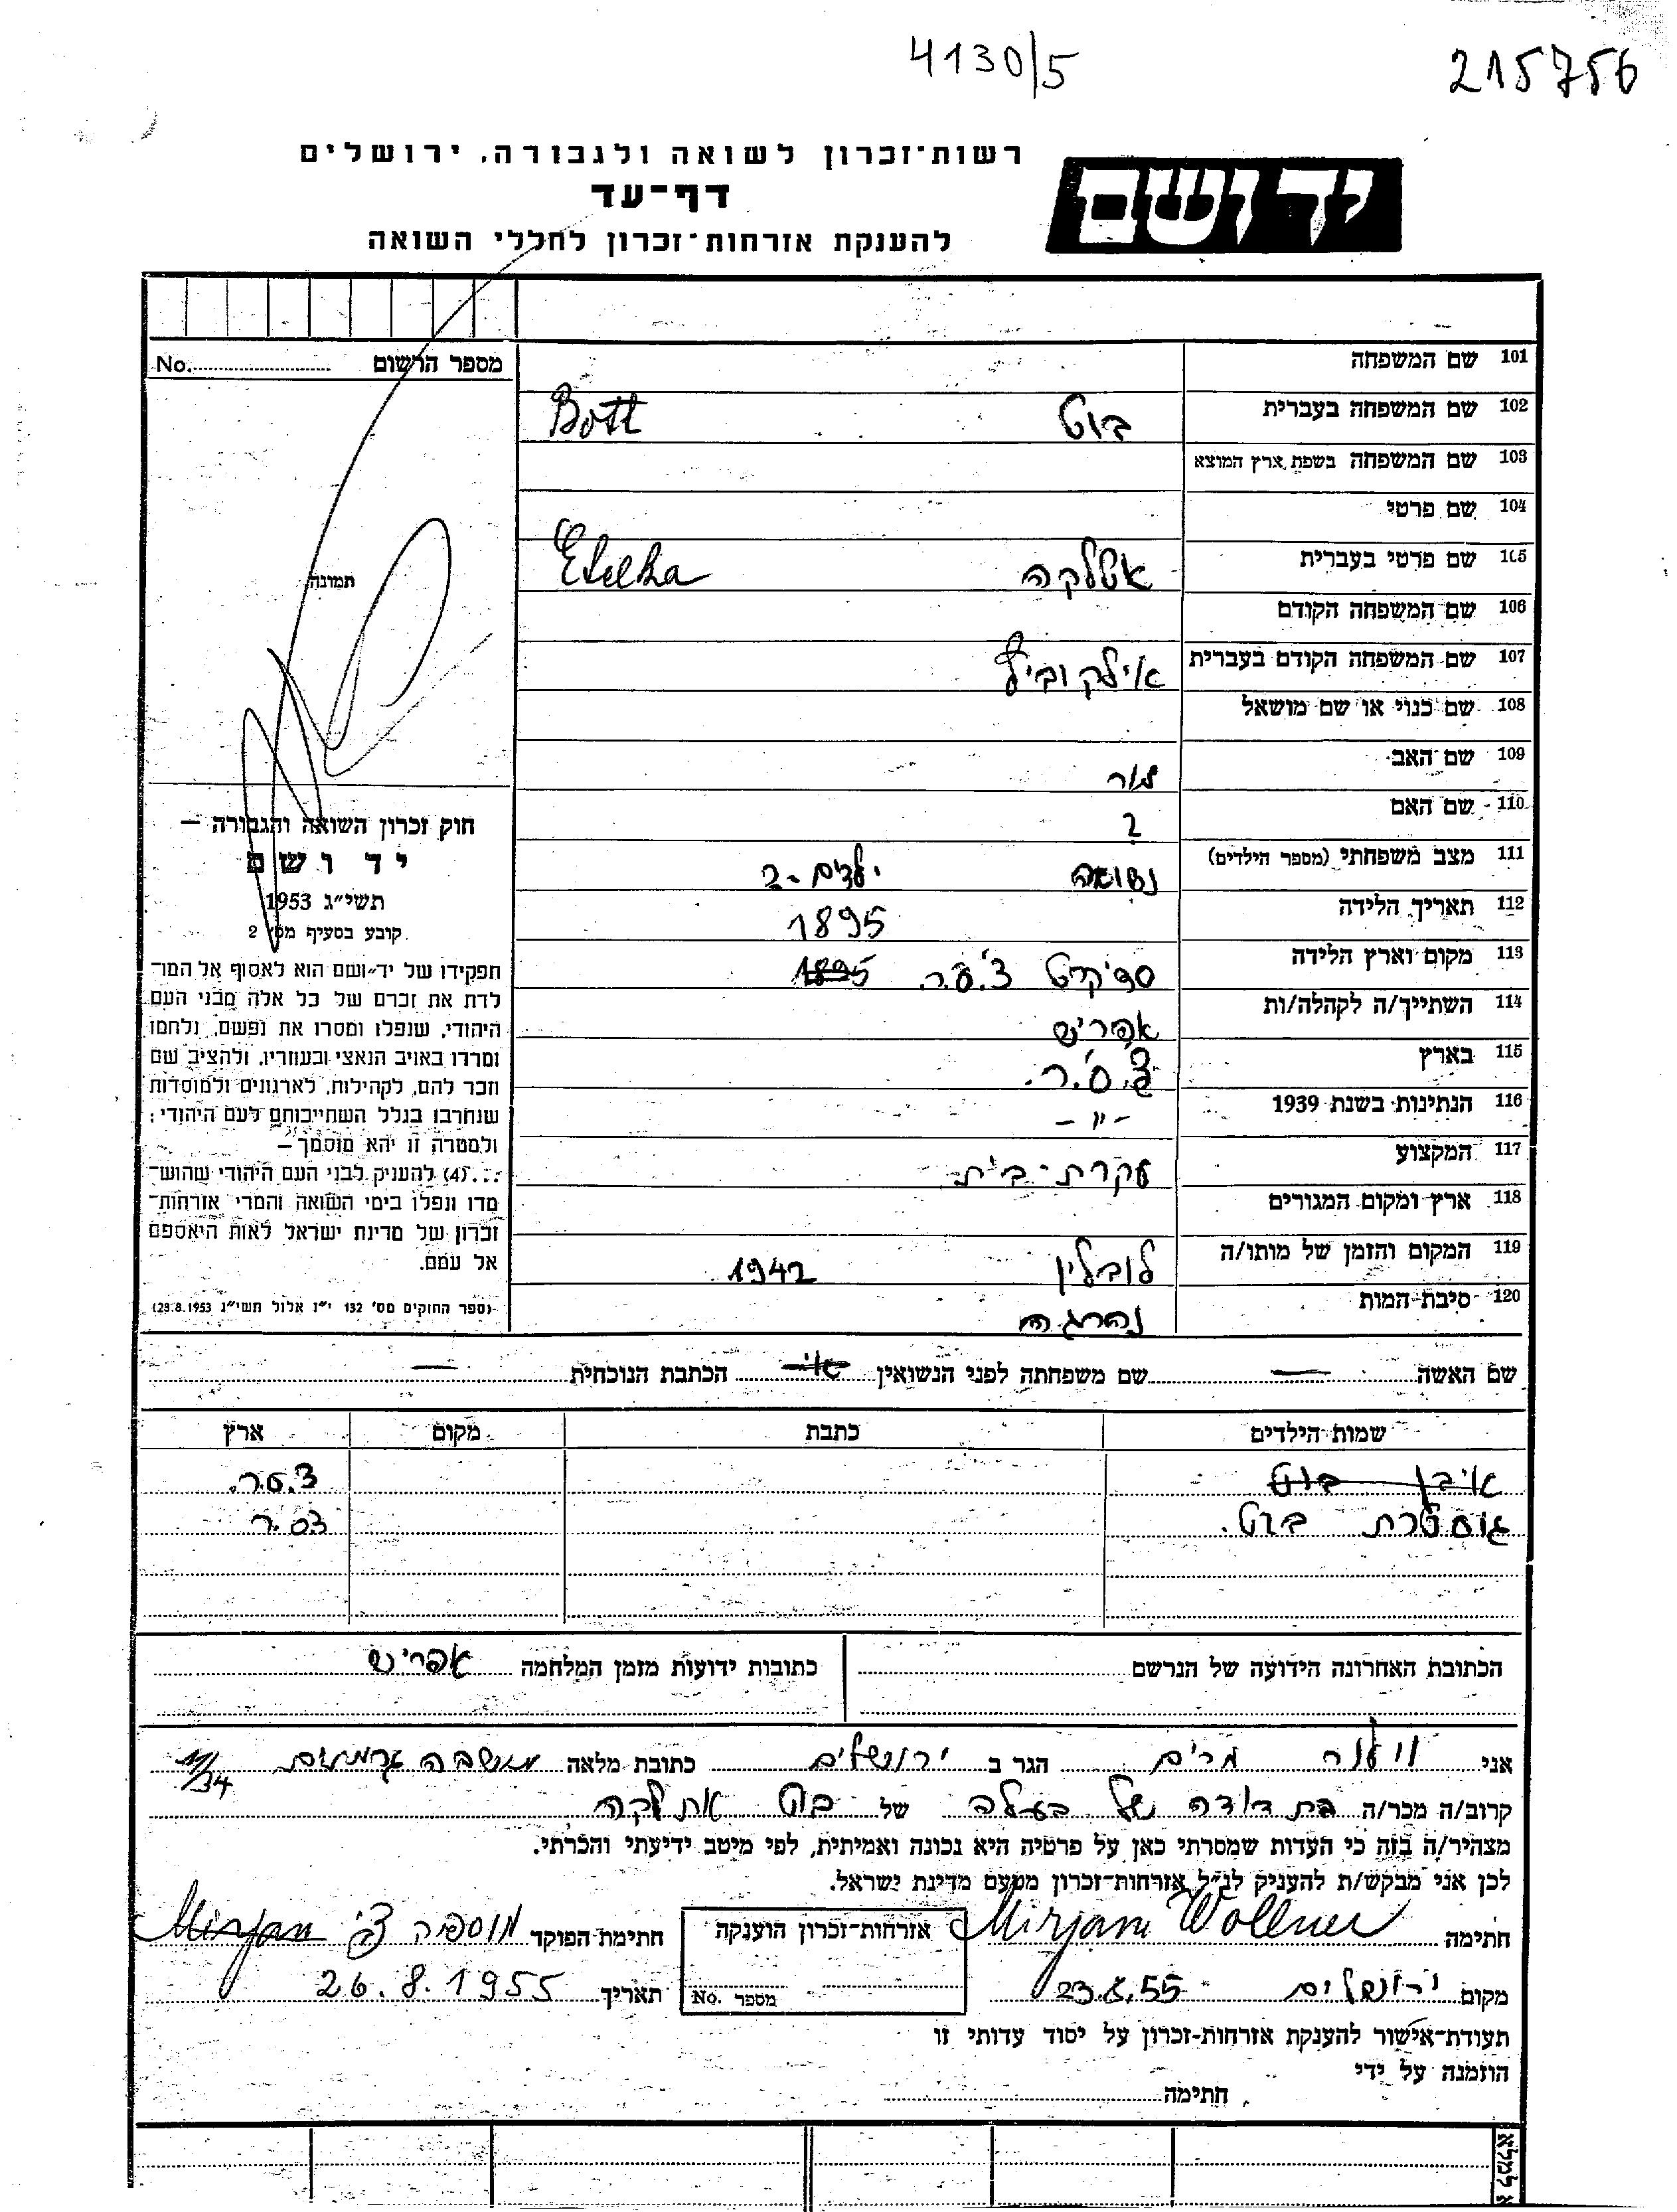 4130/5
215756
רשות־זכרון לשואה ולגבורה, ירושלים
יד ושם
דף־עד
להענקת אזרחות־זכרון לחללי השואה
No. מספר הרשום
תמונה
101 שם המשפחה
102 שם המשפחה בעברית בוט Bott
103 שם המשפחה בשפת ארץ המוצא
104 שם פרטי
105 שם פרטי בעברית אטלקה Etelka
106 שם המשפחה הקודם
107 שם המשפחה הקודם בעברית
108 שם כנוי או שם מושאל
109 שם האב
110 שם האם ?
111 מצב משפחתי (מספר הילדים) נשואה ילדים - 2
112 תאריך הלידה 1895
113 מקום וארץ הלידה צ'.ס.ר. 1895
114 השתייך/ה לקהלה/ות אפריש
115 בארץ צ'.ס.ר.
116 הנתינות בשנת 1939 - " -
117 המקצוע עקרת-בית
118 ארץ ומקום המגורים
119 המקום והזמן של מותו/ה לובלין 1942
120 סיבת־המות נהרגה
חוק זכרון השואה והגבורה —
יד ושם
תשי״ג 1953
קובע בסעיף מס׳ 2
תפקידו של יד־ושם הוא לאסוף אל המו־
לדת את זכרם של כל אלה מבני העם
היהודי, שנפלו ומסרו את נפשם, נלחמו
ומרדו באויב הנאצי ובעוזריו, ולהציב שם
וזכר להם, לקהילות, לארגונים ולמוסדות
שנחרבו בגלל השתייכותם לעם היהודי;
ולמטרה זו יהא מוסמך —
...(4) להעניק לבני העם היהודי שהוש־
מדו ונפלו בימי השואה והמרי אזרחות־
זכרון של מדינת ישראל לאות היאספם
אל עמם.
(ספר החוקים מס׳ 132 י״ז אלול תשי״ג 28.8.1953)
שם האשה — שם משפחתה לפני הנשואין הכתבת הנוכחית —
שמות הילדים כתבת מקום ארץ
בוט צ.ס.ר.
בוט. צ.ס.ר
הכתובת האחרונה הידועה של הנרשם
כתובות ידועות מזמן המלחמה אפריש
אני וולנר מרים הגר ב ירושלים כתובת מלאה מושבה גרמנית
קרוב/ה מכר/ה בת דודה של בעלה של בוט אתלקה
מצהיר/ה בזה כי העדות שמסרתי כאן על פרטיה היא נכונה ואמיתית, לפי מיטב ידיעתי והכרתי.
לכן אני מבקש/ת להעניק לנ״ל אזרחות־זכרון מטעם מדינת ישראל.
חתימה Mirjam Wollner
אזרחות־זכרון הוענקה
מספר No.
חתימת הפוקד
מקום ירושלים 23.8.55
תאריך 26.8.1955
תעודת־אישור להענקת אזרחות־זכרון על יסוד עדותי זו
הוזמנה על ידי
חתימה